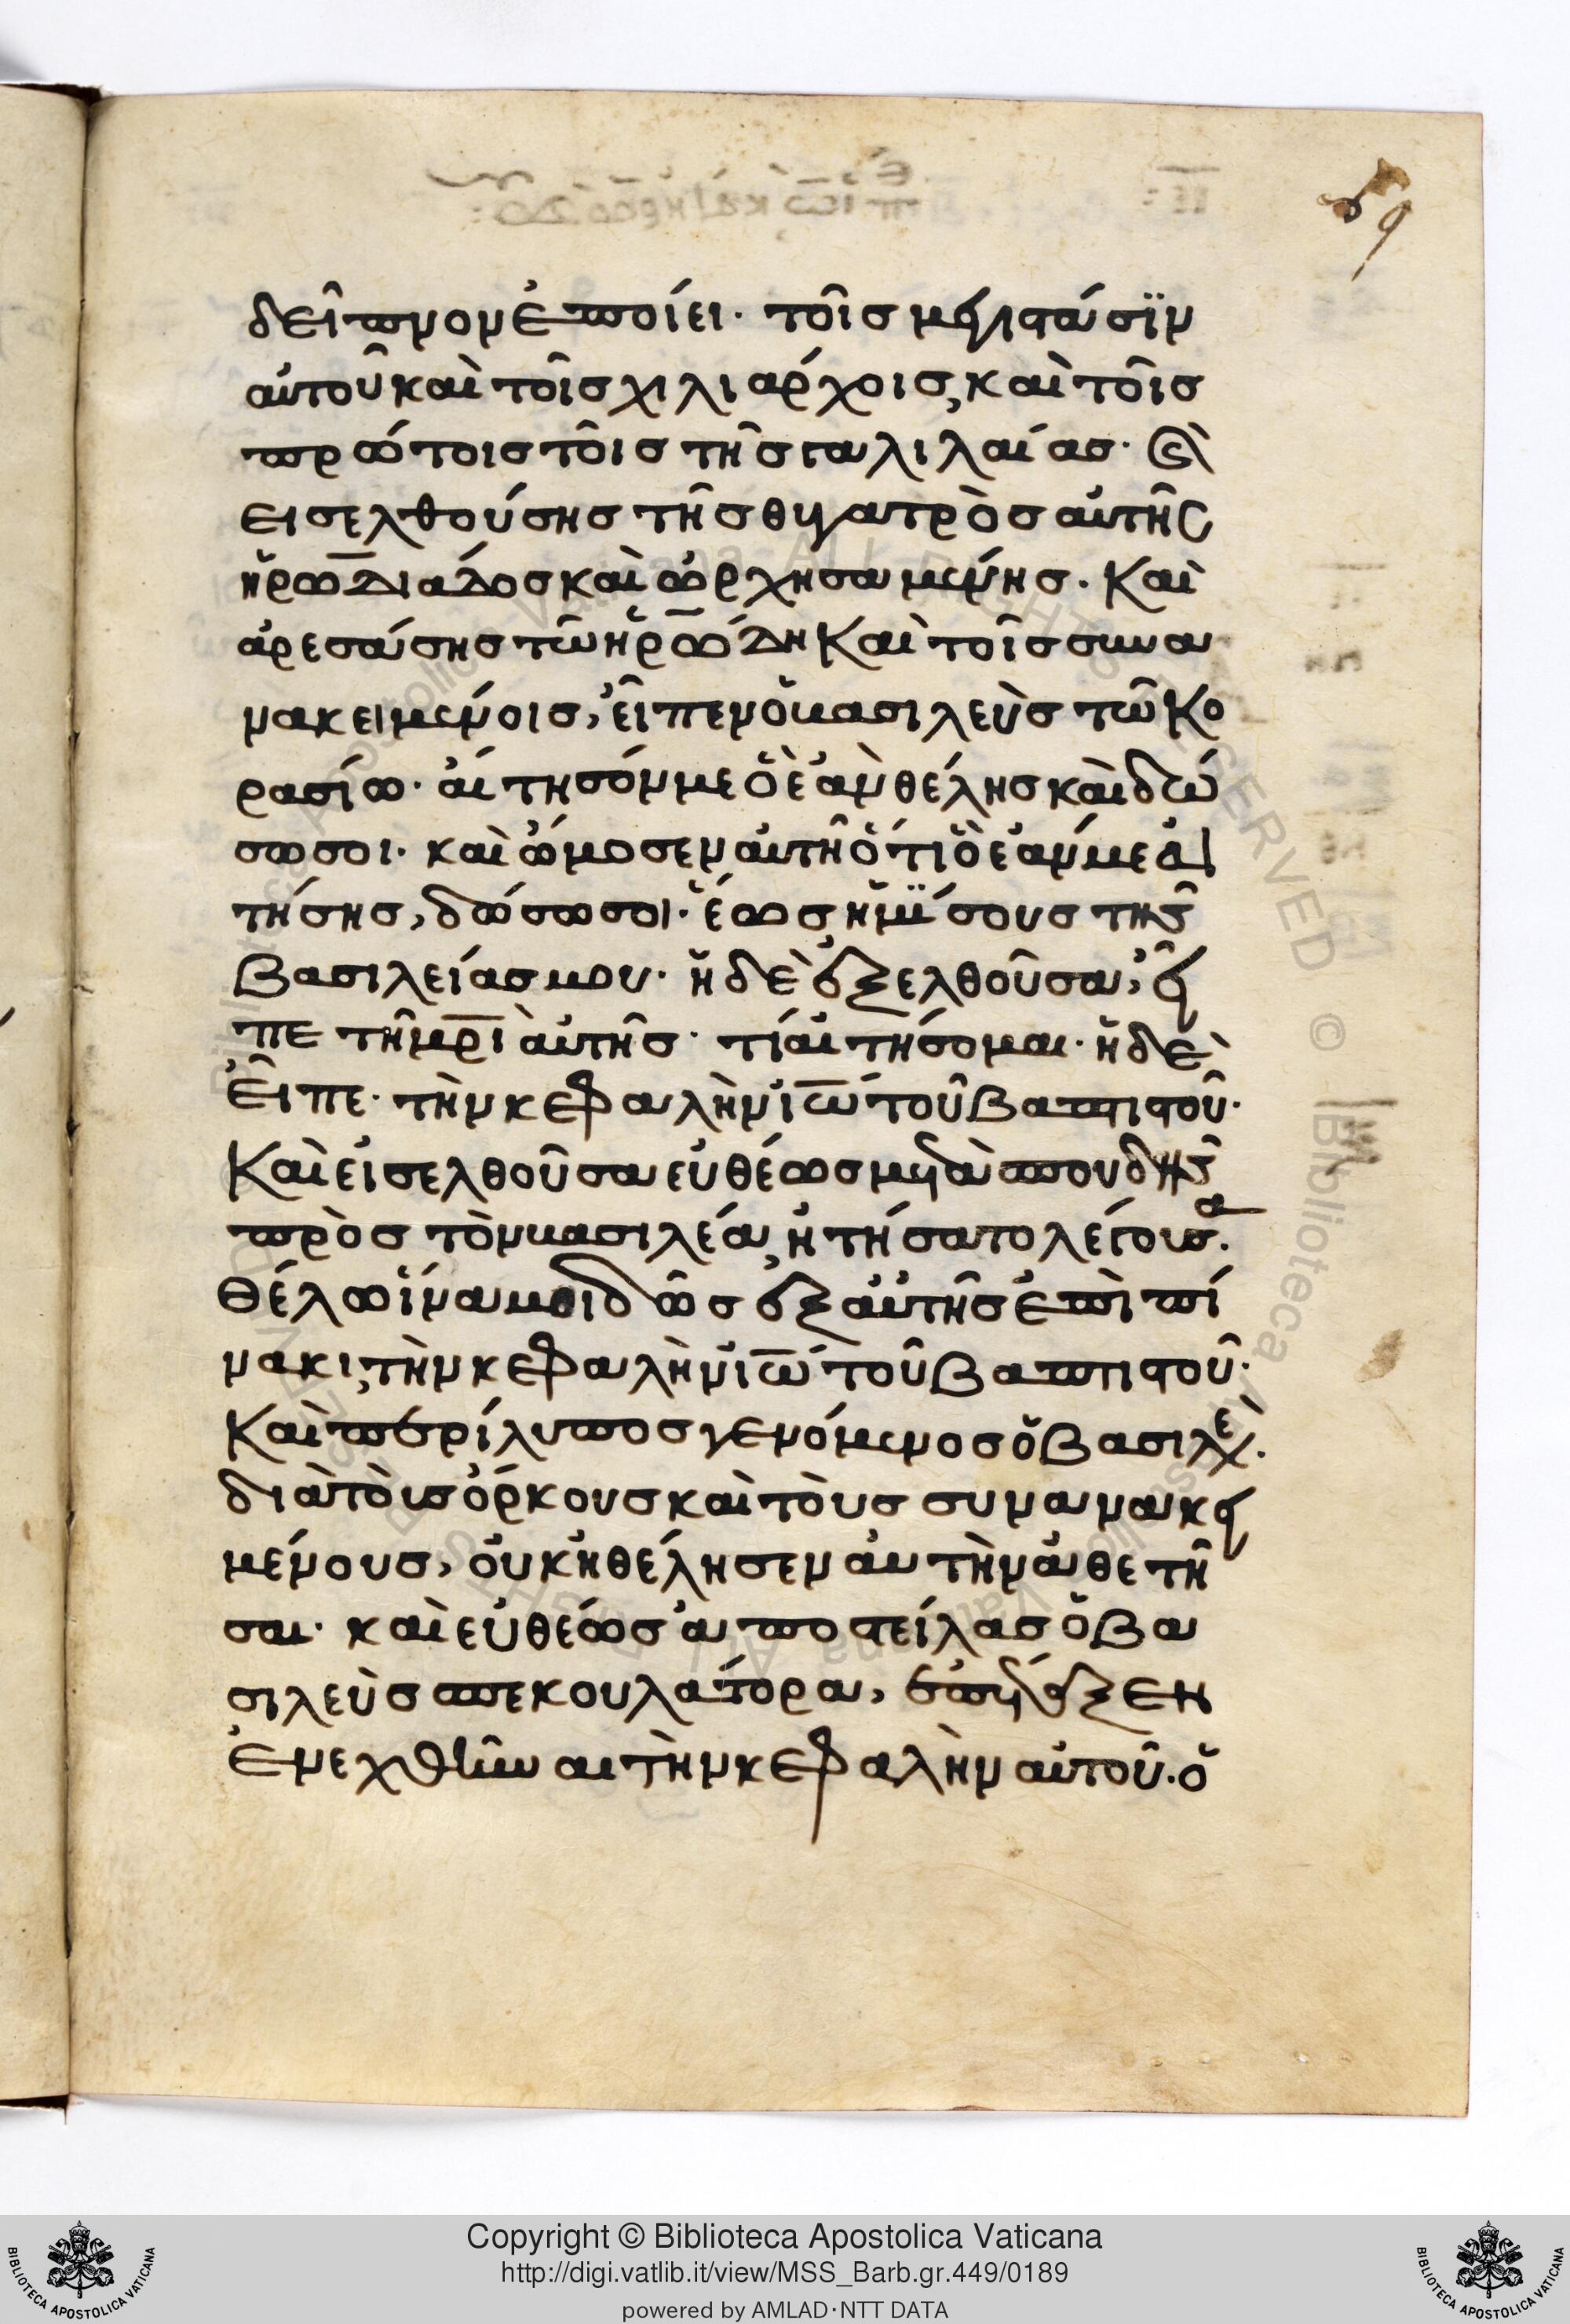 δεῖπνον ἐποίει· τοῖς μεγιστάσϊν
αὐτοῦ καὶ τοῖς χιλιάρχοις, καὶ τοῖς
πρώτοις τοῖς τῆς γαλιλαίας· καὶ
εισελθούσης τῆς θυγατρὸς αὐτῆς
ἡρωδιάδος καὶ ὀρχησαμένης. Και
ἀρεσάσης τῶ ἡρώδη Καὶ τοῖς συνα
νακειμένοις, εἶπεν ὁ βασιλεὺς τῶ Κο
ρασίω· αἴτησόν με ὃ ἐὰν θέλης καὶ δώ
σω σοι· καὶ ὤμοσεν αὐτῆ ὅτι ὃ ἐάν με αἰ
τήσης, δώσω σοι· ἕως ἡμϊσους τῆς
βασιλείας μου· ἡ δὲ ἐξελθοῦσα, εἶ
πε τῆ μρὶ αὐτῆς· τί αἰτήσομαι· ἡ δὲ
εἶπε· τὴν κεφαλὴν ἰω τοῦ βαπτιστοῦ·
Καὶ εἰσελθοῦσα εὐθέως μετὰ σπουδῆς
πρὸς τὸν βασιλέα, ἠτήσατο λέγουσα.
Θέλω ἵνα μοι δῶς ἐξ αὐτῆς ἐπὶ πί
νακι, τὴν κεφαλὴν ἰω τοῦ βαπτιστοῦ·
Καὶ περίλυπος γενόμενος ὁ βασιλεὺ.
διὰ τοὺς ὅρκους καὶ τοὺς συνανακει
μένους, οὐκ ἠθέλησεν αὐτὴν ἀθετῆ
σαι· καὶ εὐθέως ἀποστείλας ὁ βα
σιλεὺς σπεκουλάτορα, ἐπέταξεν
ἐνεχθῆναι τὴν κεφαλὴν αὐτοῦ· ὁ
Copyright © Biblioteca Apostolica Vaticana
http://digi.vatlib.it/view/MSS_Barb.gr.449/0189
powered by AMLAD·NTT DATA
BIBLIOTECA APOSTOLICA VATICANA
BIBLIOTECA APOSTOLICA VATICANA